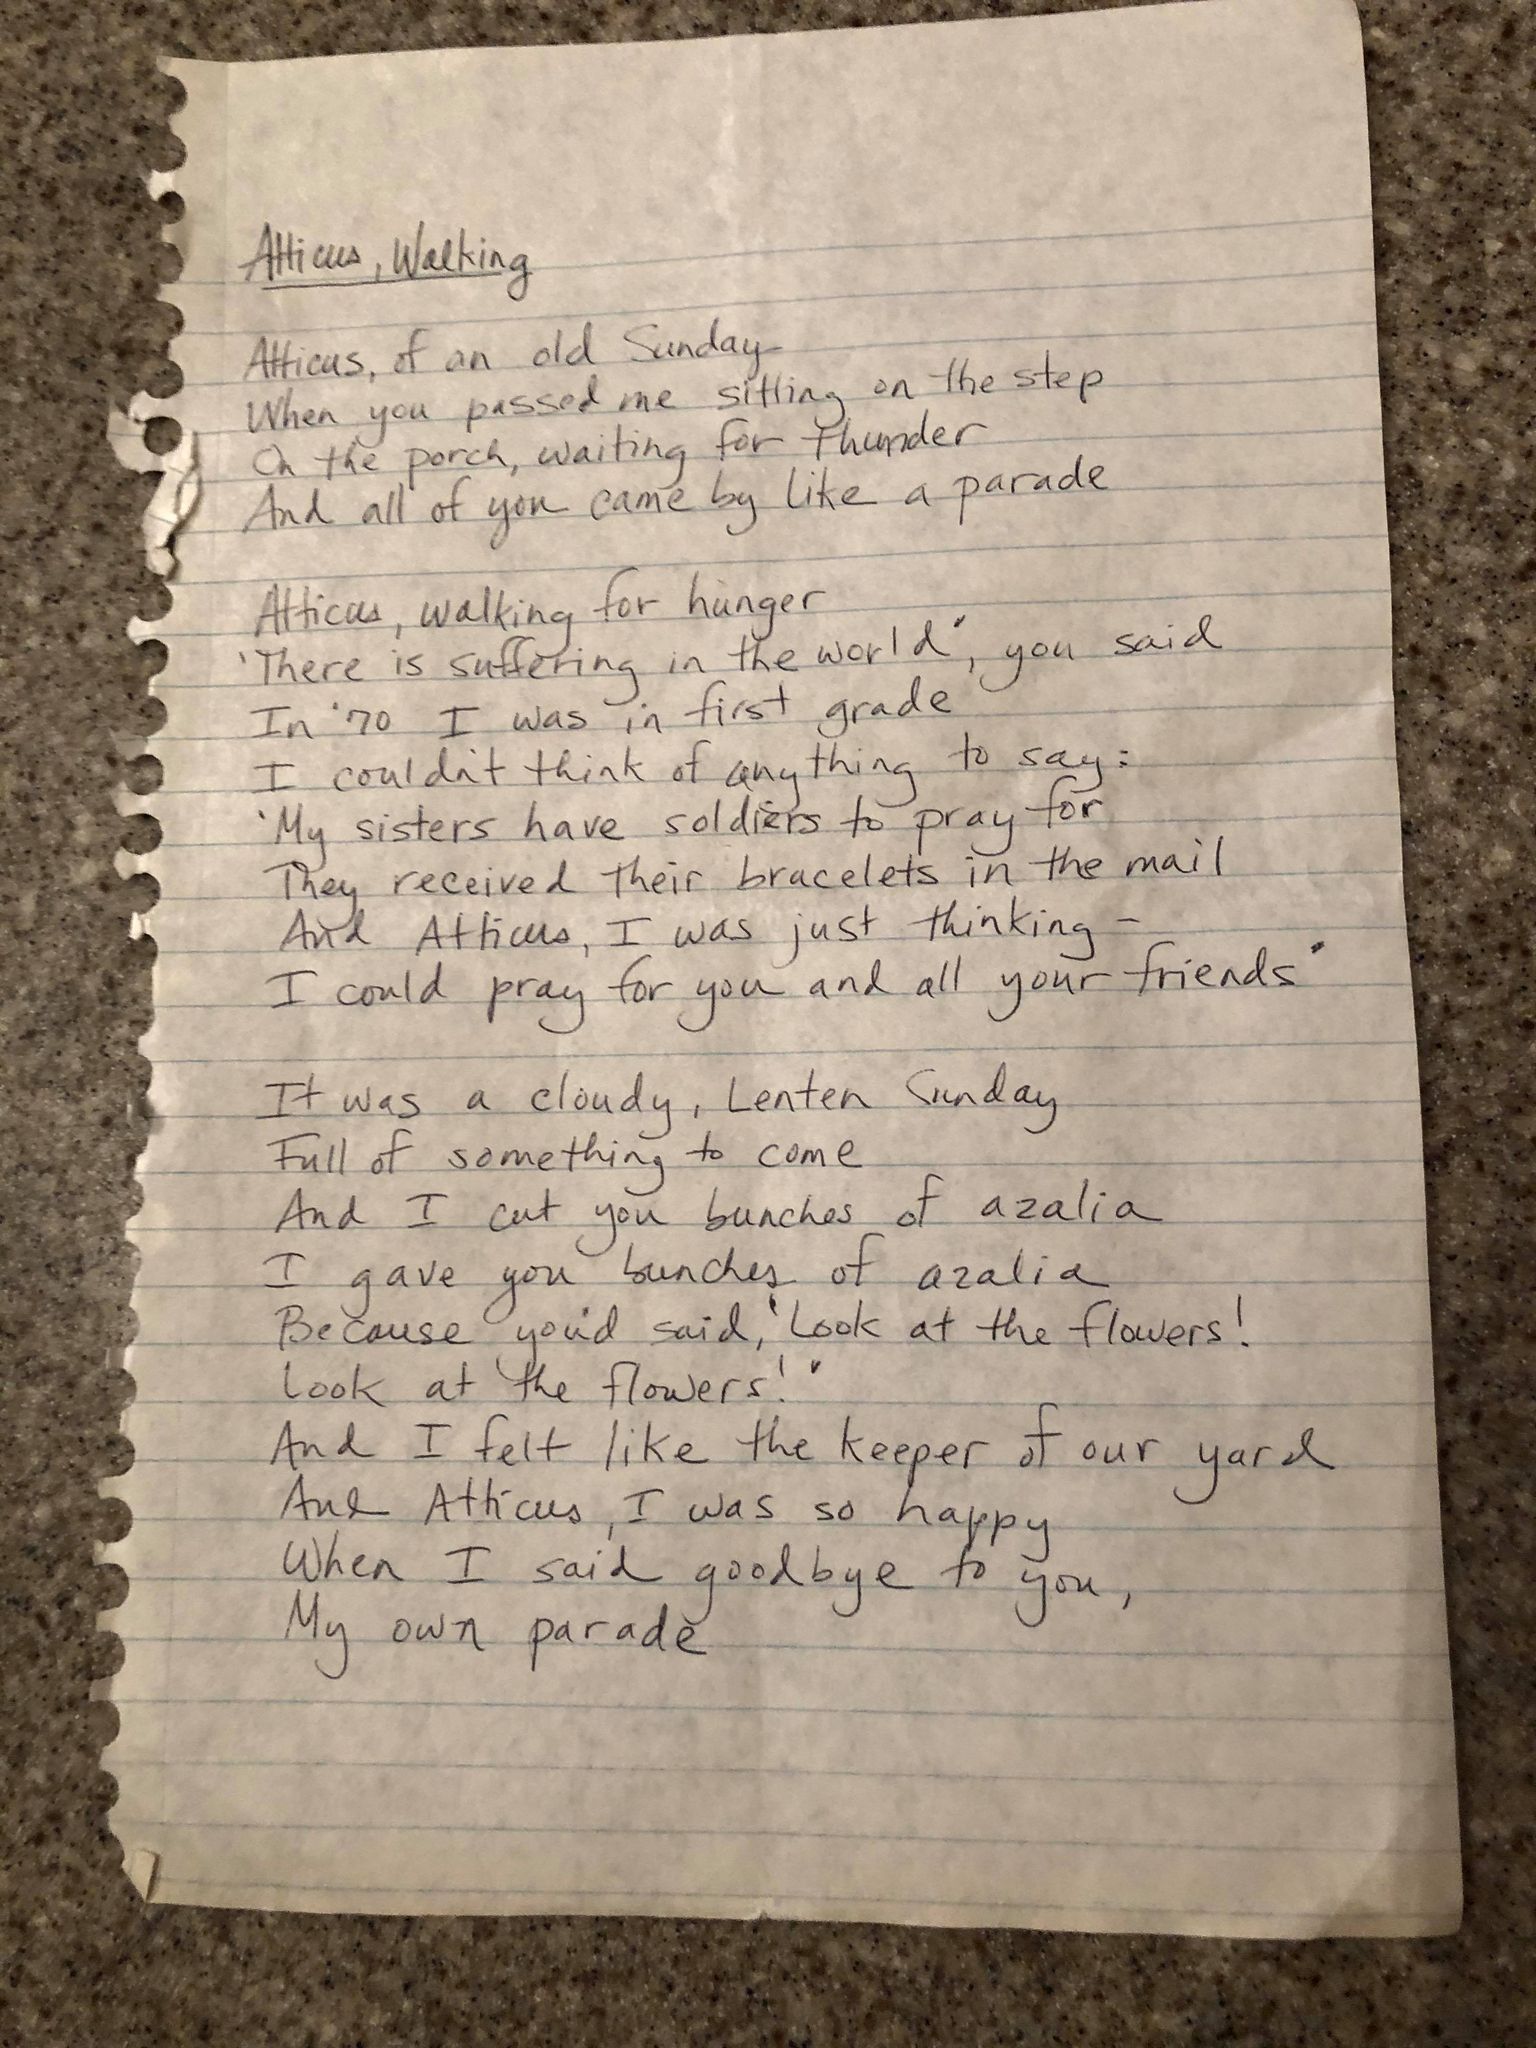 Atticus, Walking
Atticus, of an old Sunday
When you passed me sitting on the step
On the porch, waiting for thunder
And all of you came by like a parade
Atticus, walking for hunger
'There is suffering in the world', you said
In '70 I was in first grade
I couldn't think of anything to say:
'My sisters have soldiers to pray for
They received their bracelets in the mail
And Atticus, I was just thinking -
I could pray for you and all your friends'
It was a cloudy, Lenten Sunday
Full of something to come
And I cut you bunches of azalia
I gave you bunches of azalia
Because you'd said, 'Look at the flowers!
Look at the flowers!'
And I felt like the keeper of our yard
And Atticus, I was so happy
When I said goodbye to you,
My own parade